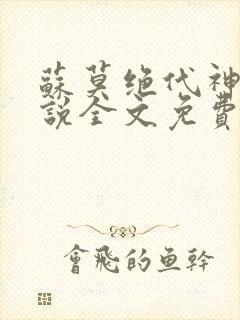 蘇莫绝代神
說全文免費
會飛的鱼幹